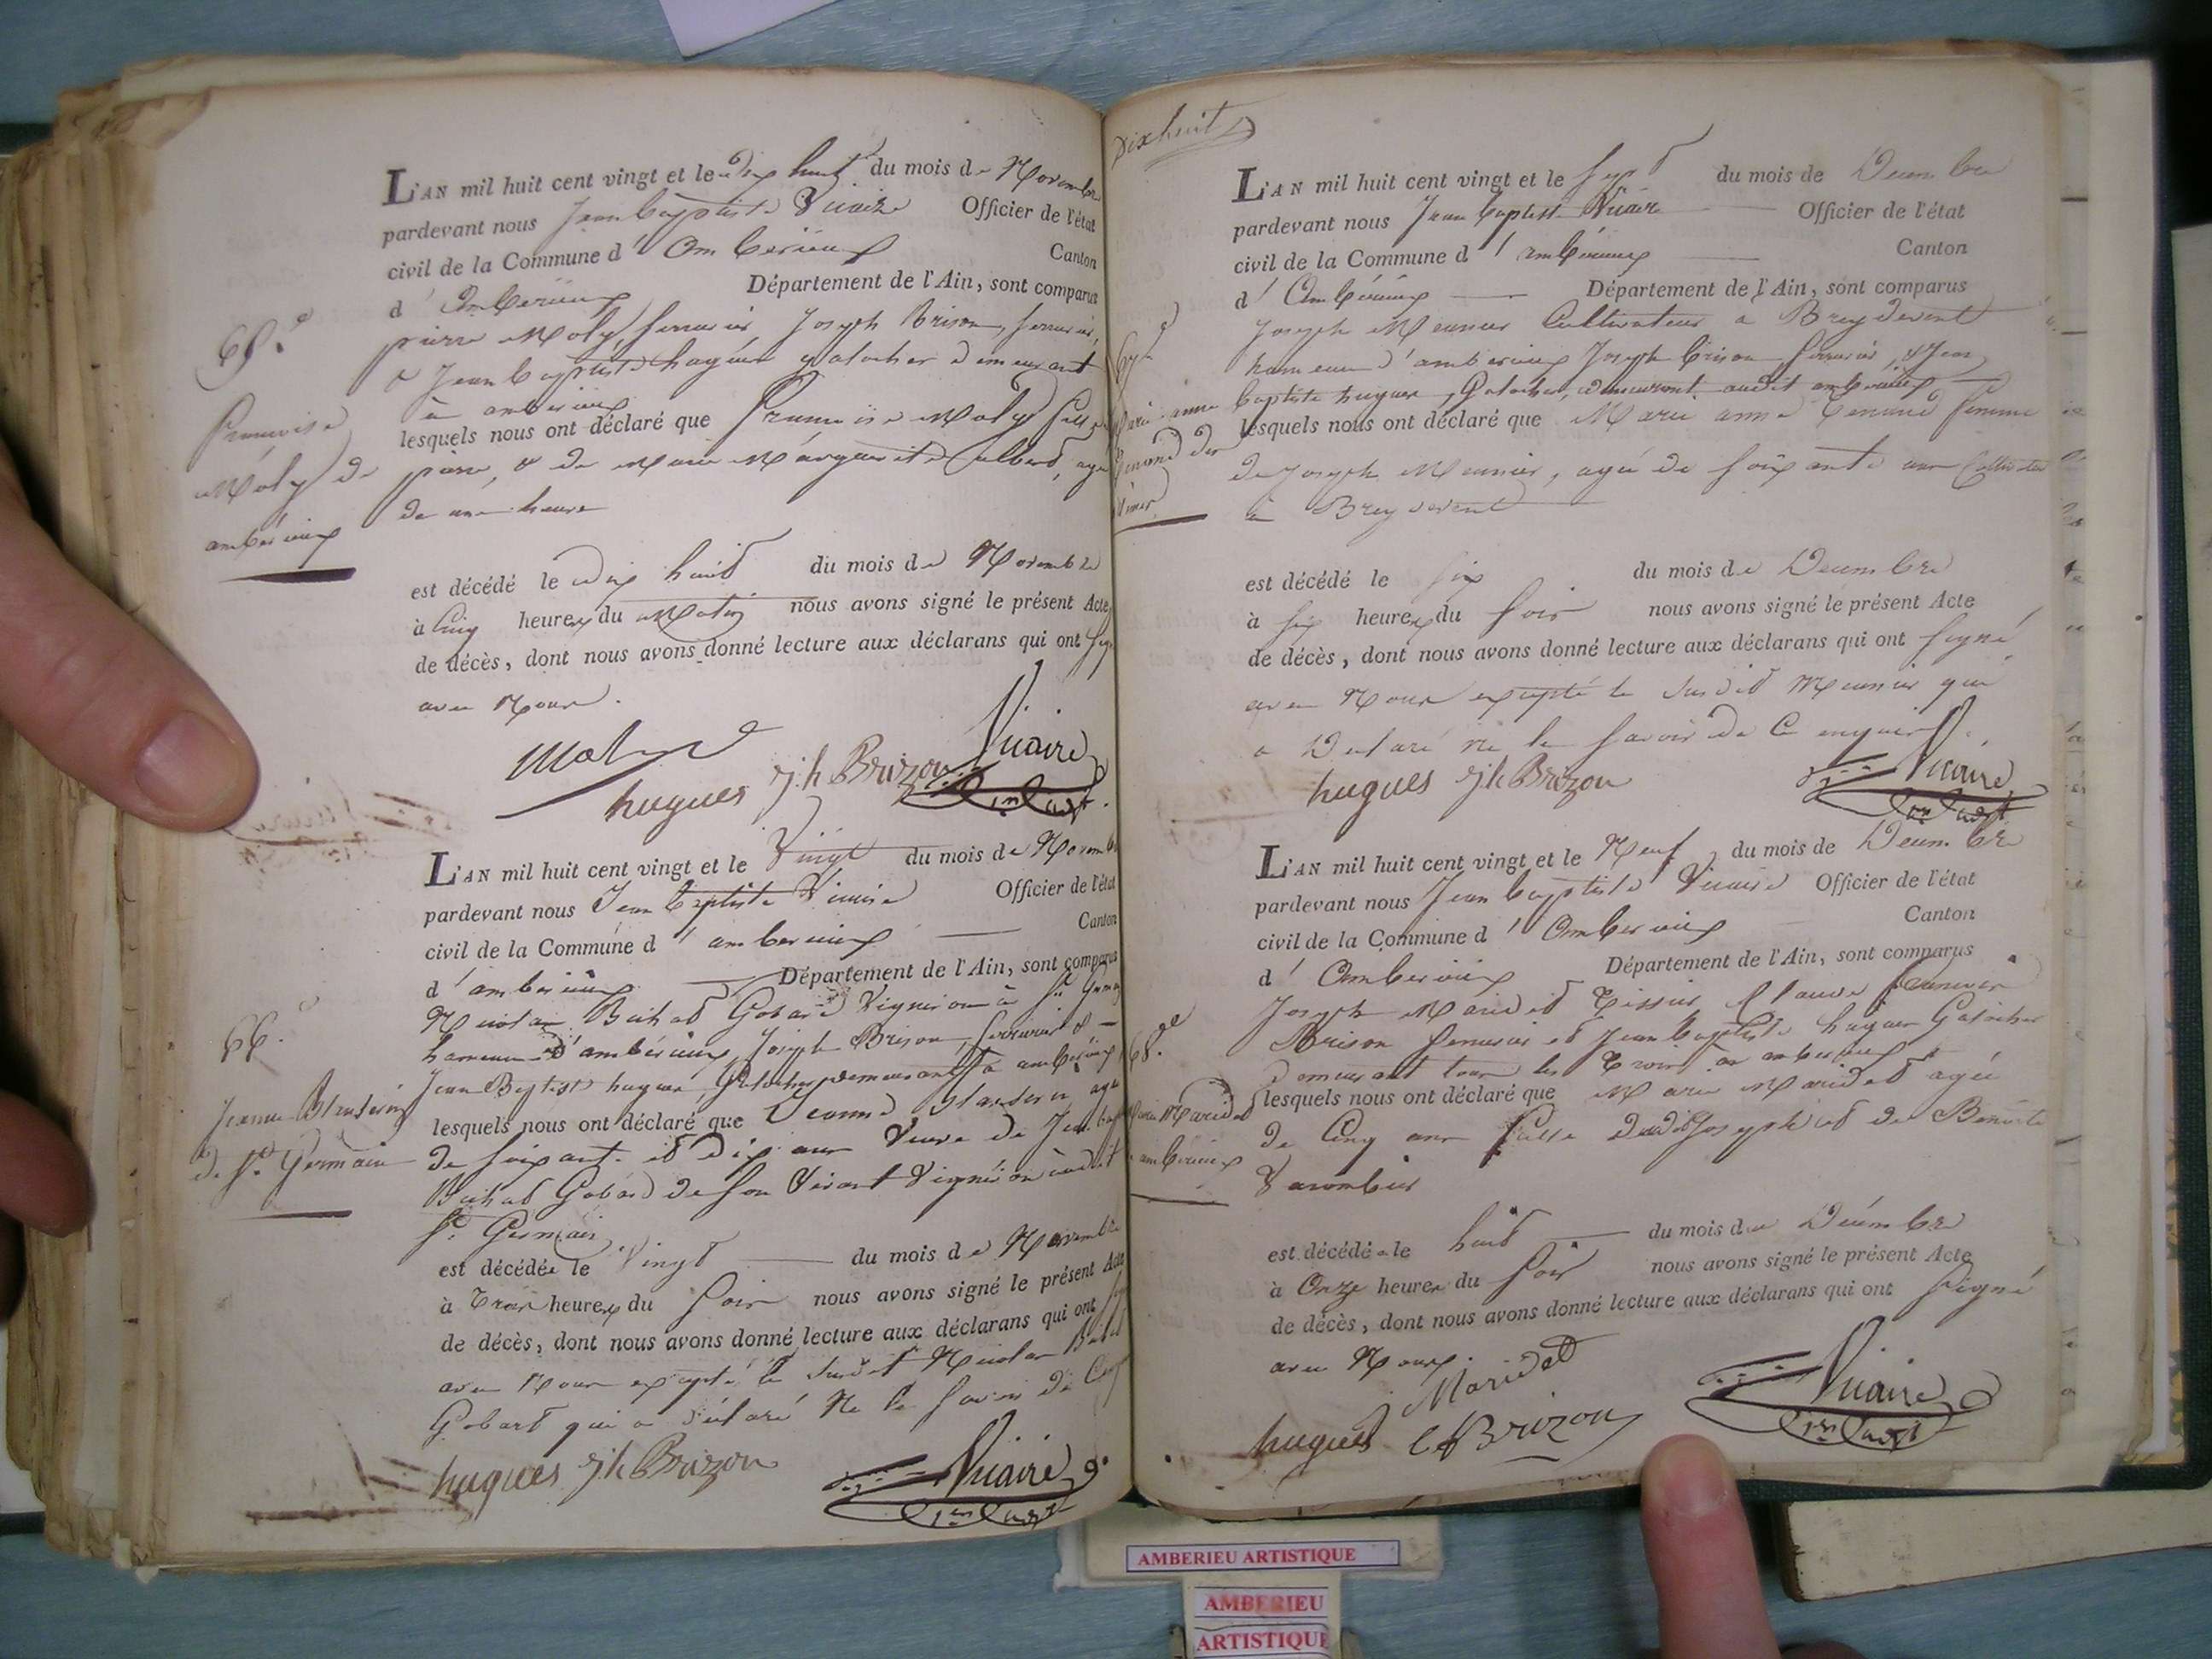 L'AN mil huit cent vingt et le dix huit du mois de Novembre
pardevant nous Jean baptiste Vicaire Officier de l'état
civil de la Commune d'Ambérieux Canton
d'Ambérieux Département de l'Ain, sont comparus
pierre Moly, serrurier, Joseph Brison, serrurier,
& Jean baptiste hugues galocher demeurant
à amberieux
lesquels nous ont déclaré que Francoise Moly fille de
pierre, & de Marie Marguerite, agé
de une heure
65.e
Francoise
Moly de
ambérieux
est décédé le dix huit du mois de Novembre
à Cinq heures du Matin nous avons signé le présent Acte
de décès, dont nous avons donné lecture aux déclarans qui ont
avec Nous.
Moly
hugues jh Brizon Vicaire
L'AN mil huit cent vingt et le Vingt du mois de Novembre
pardevant nous Jean baptiste Vicaire Officier de l'état
civil de la Commune d'amberieux Canton
d'ambérieux Département de l'Ain, sont comparus
Nicolas Gobard Vigneron à St. Germain
hameau d'ambérieux, Joseph Brison, serrurier &
Jean Baptiste hugues, Galocher demeurant à ambérieux
lesquels nous ont déclaré que Jeanne agée
de soixante et dix ans Veuve de Jean
Gobard de son Vivant Vigneron audit
St. Germain
66.e
Jeanne
de St. Germain
est décédée le Vingt du mois de Novembre
à Trois heures du Soir nous avons signé le présent Acte
de décès, dont nous avons donné lecture aux déclarans qui ont
avec Nous excepté le susdit Nicolas
Gobard qui a déclaré Ne le savoir de
hugues jh Brizon Vicaire
Dixhuit
L'AN mil huit cent vingt et le Sept du mois de Decembre
pardevant nous Jean baptiste Vicaire Officier de l'état
civil de la Commune d'ambérieux Canton
d'Ambérieux Département de l'Ain, sont comparus
Joseph Meunier Cultivateur a Breydevent
hameau d'amberieux Joseph brison serrurier, & Jean
baptiste hugues, Galocher, demeurant audit ambérieux
lesquels nous ont déclaré que Marie anne femme
de Joseph Meunier, agée de soixante ans
a Breydevent
67.e
Marie anne
est décédé le six du mois de Decembre
à six heures du soir nous avons signé le présent Acte
de décès, dont nous avons donné lecture aux déclarans qui ont signé
avec Nous excepté le susdit Meunier qui
a Declaré ne le savoir de Ce enquis
hugues jh Brizon Vicaire
L'AN mil huit cent vingt et le Neuf du mois de Decembre
pardevant nous Jean baptiste Vicaire Officier de l'état
civil de la Commune d'Amberieux Canton
d'Amberieux Département de l'Ain, sont comparus
Joseph Maridet Tissier, Claude
Brison serrurier et Jean Baptiste hugues Galocher
demeurant tous les Trois à amberieux
lesquels nous ont déclaré que Marie Maridet agée
de Cinq ans fille dudit Joseph et de Benoite
Varembier
68.e
Marie Maridet
ambérieux
est décédé le huit du mois de Décembre
à Onze heures du Soir nous avons signé le présent Acte
de décès, dont nous avons donné lecture aux déclarans qui ont signé
avec Nous.
Maridet
hugues Brizon Vicaire
AMBERIEU ARTISTIQUE
AMBERIEU
ARTISTIQUE